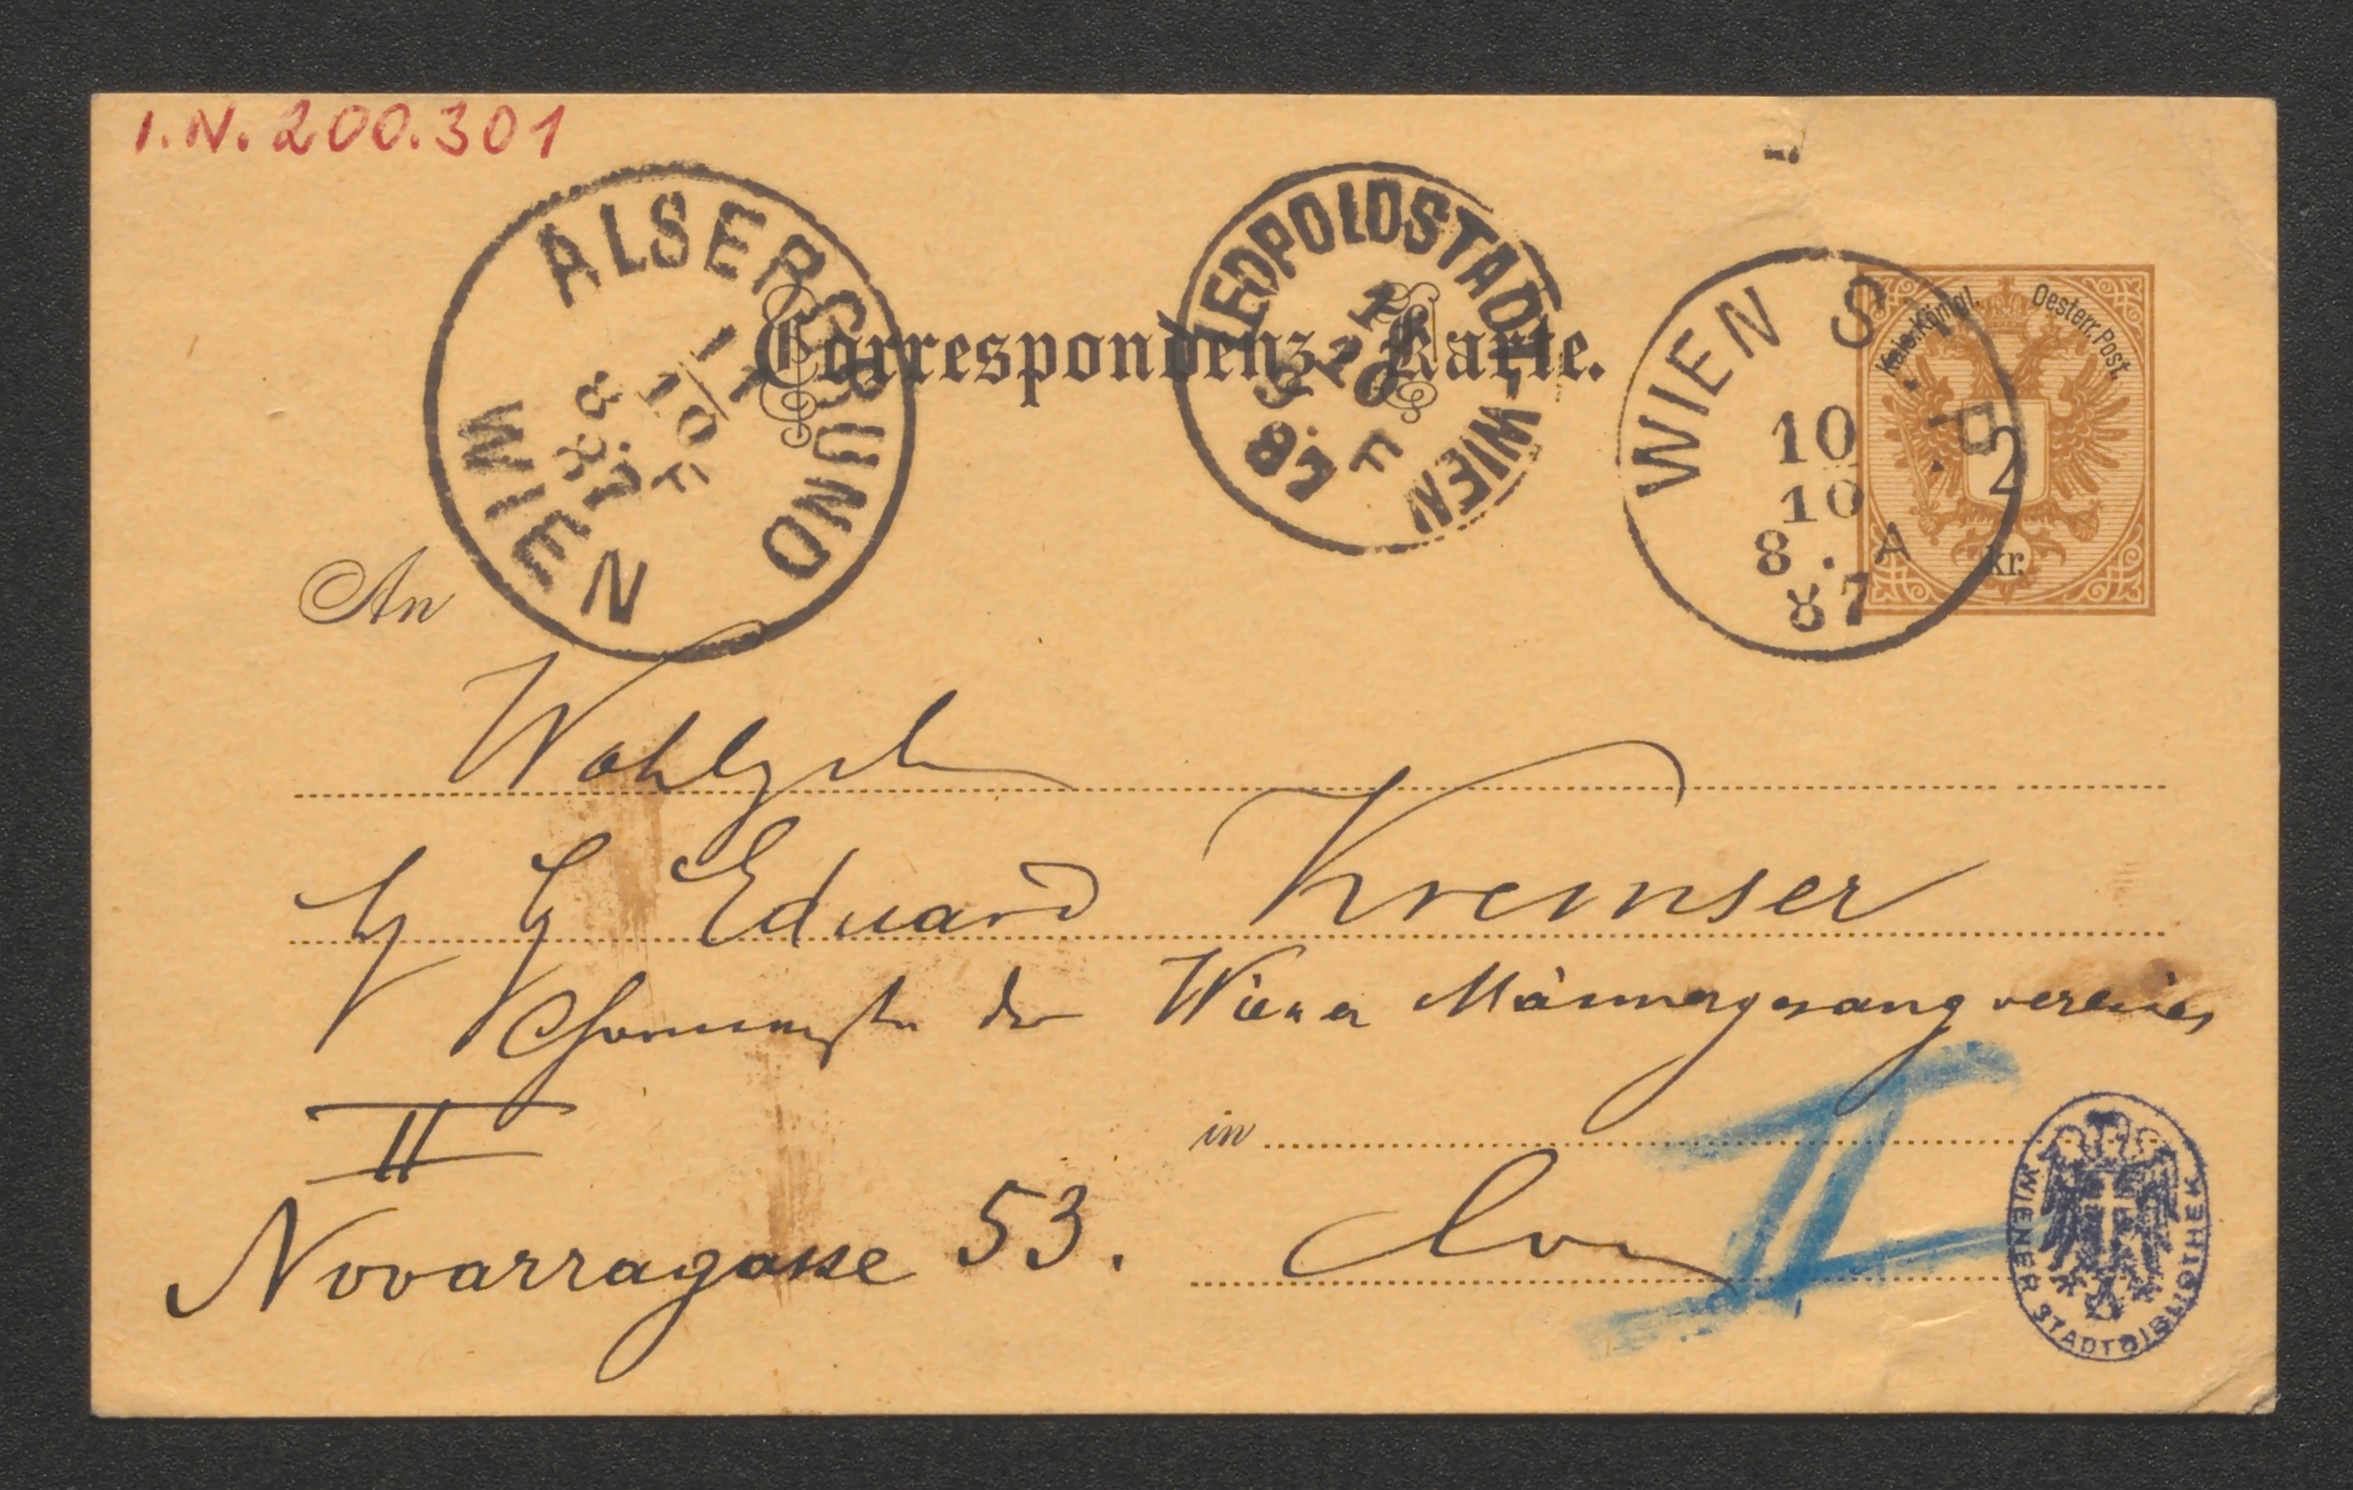 I.N. 200.301
ALSERGRUND WIEN
LEOPOLDSTADT WIEN
WIEN S.P.
10
10
8. A
87
Kais. Königl. Oesterr. Post.
2
kr.
Correspondenz-Karte.
An
Wohlgeb
H H Eduard Kremser
Chormeister des Wiener Männergesangvereines
II
in
Novarragasse 53.
Loco
II
WIENER STADTBIBLIOTHEK